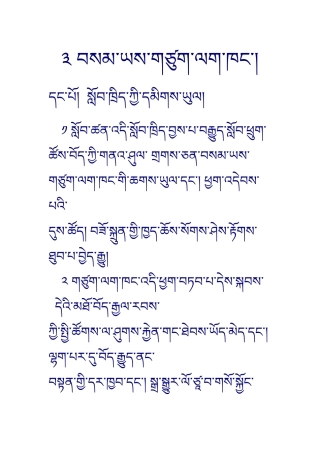 ༣ བསམ་ཡས་གཙུག་ལག་ཁང་།
དང་པོ། སློབ་ཁྲིད་ཀྱི་དམིགས་ཡུལ།
༡ སློབ་ཚན་འདི་སློབ་ཁྲིད་བྱས་པ་བརྒྱུད་སློབ་ཕྲུག་
ཚོས་བོད་ཀྱི་གནའ་ཤུལ་ གྲགས་ཅན་བསམ་ཡས་
གཙུག་ལག་ཁང་གི་ཆགས་ཡུལ་དང་། ཕྱག་འདེབས་
པའི་
དུས་ཚོད། བཟོ་སྐྲུན་གྱི་ཁྱད་ཆོས་སོགས་ཤེས་རྟོགས་
ཐུབ་པ་བྱེད་རྒྱུ།
༢ གཙུག་ལག་ཁང་འདི་ཕྱག་བཏབ་པ་དེས་སྐབས་
དེའི་མཐོ་བོད་རྒྱལ་རབས་
ཀྱི་སྤྱི་ཚོགས་ལ་ཤུགས་རྐྱེན་གང་ཐེབས་ཡོད་མེད་དང་།
ལྷག་པར་དུ་བོད་རྒྱུད་ནང་
བསྟན་གྱི་དར་ཁྱབ་དང་། སྒྲ་སྒྱུར་ལོ་ཙཱ་བ་གསོ་སྐྱོང་